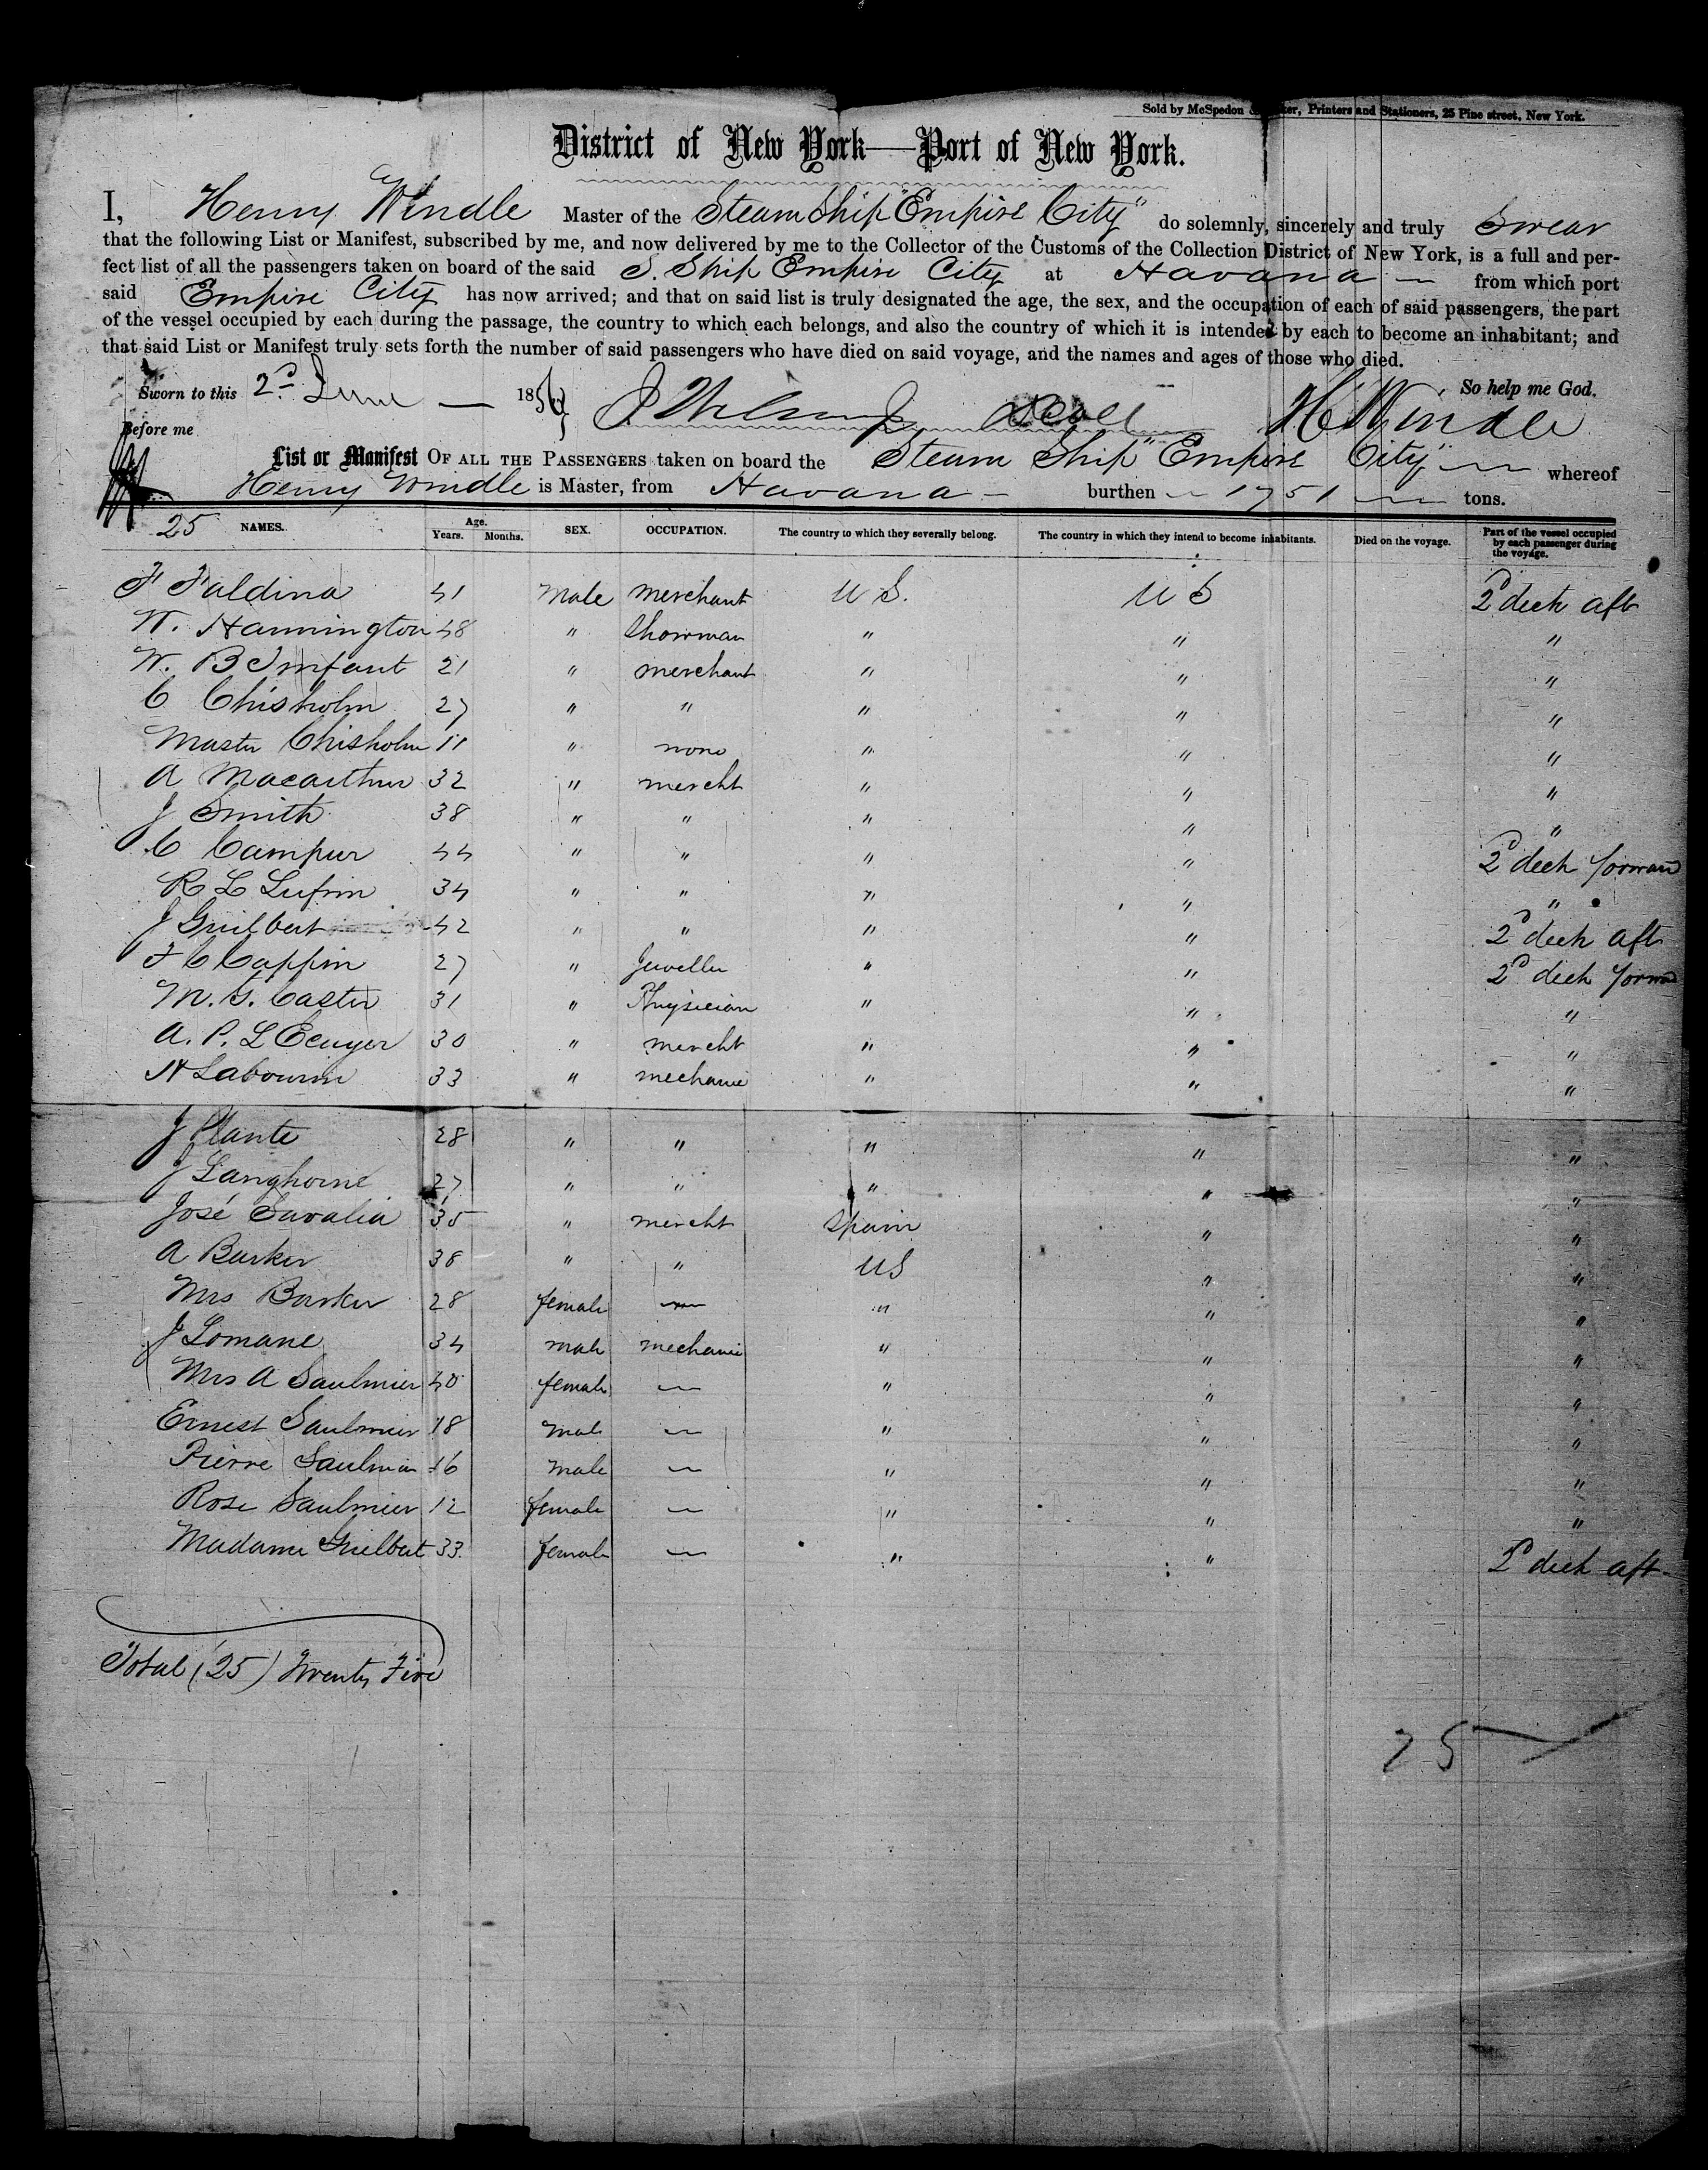 Sold by McSpedon & Baker, Printers and Stationers, 25 Pine street, New York.
District of New York—Port of New York.
I, Henry Windle Master of the Steam Ship "Empire City" do solemnly, sincerely and truly Swear
that the following List or Manifest, subscribed by me, and now delivered by me to the Collector of the Customs of the Collection District of New York, is a full and per-
fect list of all the passengers taken on board of the said S. Ship Empire City at Havana from which port
said Empire City has now arrived; and that on said list is truly designated the age, the sex, and the occupation of each of said passengers, the part
of the vessel occupied by each during the passage, the country to which each belongs, and also the country of which it is intended by each to become an inhabitant; and
that said List or Manifest truly sets forth the number of said passengers who have died on said voyage, and the names and ages of those who died.
Sworn to this 2d June 1856 So help me God.
Before me H Windle
List or Manifest OF ALL THE PASSENGERS taken on board the Steam Ship "Empire City" whereof
Henry Windle is Master, from Havana burthen 1751 tons.
25 NAMES. Age. Years. Months. SEX. OCCUPATION. The country to which they severally belong. The country in which they intend to become inhabitants. Died on the voyage. Part of the vessel occupied by each passenger during the voyage.
F Faldina 41 Male merchant U S. U S 2d deck aft
W. Hannington 48 " Showman " " "
W. B Infant 21 " merchant " " "
C Chisholm 27 " " " " "
Master Chisholm 11 " none " " "
A Macarthur 32 " mercht " " "
J Smith 38 " " " " "
C Campur 44 " " " " 2d deck forward
R L Lufrin 34 " " " " "
J Guilbert 42 " " " " 2d deck aft
F C Cappin 27 " Jeweller " " 2d deck forwd
M. G. Caster 31 " Physician " " "
A. P. L Ecuyer 30 " mercht " " "
N Labourin 33 " mechanic " " "
J Plante 28 " " " " "
J Langhorne 27 " " " " "
José Savalia 35 " mercht Spain " "
A Barker 38 " " US " "
Mrs Barker 28 female — " " "
J Lomane 34 male mechanic " " "
Mrs A Saulmier 40 female — " " "
Ernest Saulmier 18 male — " " "
Pierre Saulmier 16 male — " " "
Rose Saulmier 12 female — " " "
Madame Guilbert 33 female — " " 2d deck aft
Total (25) Twenty Five
25